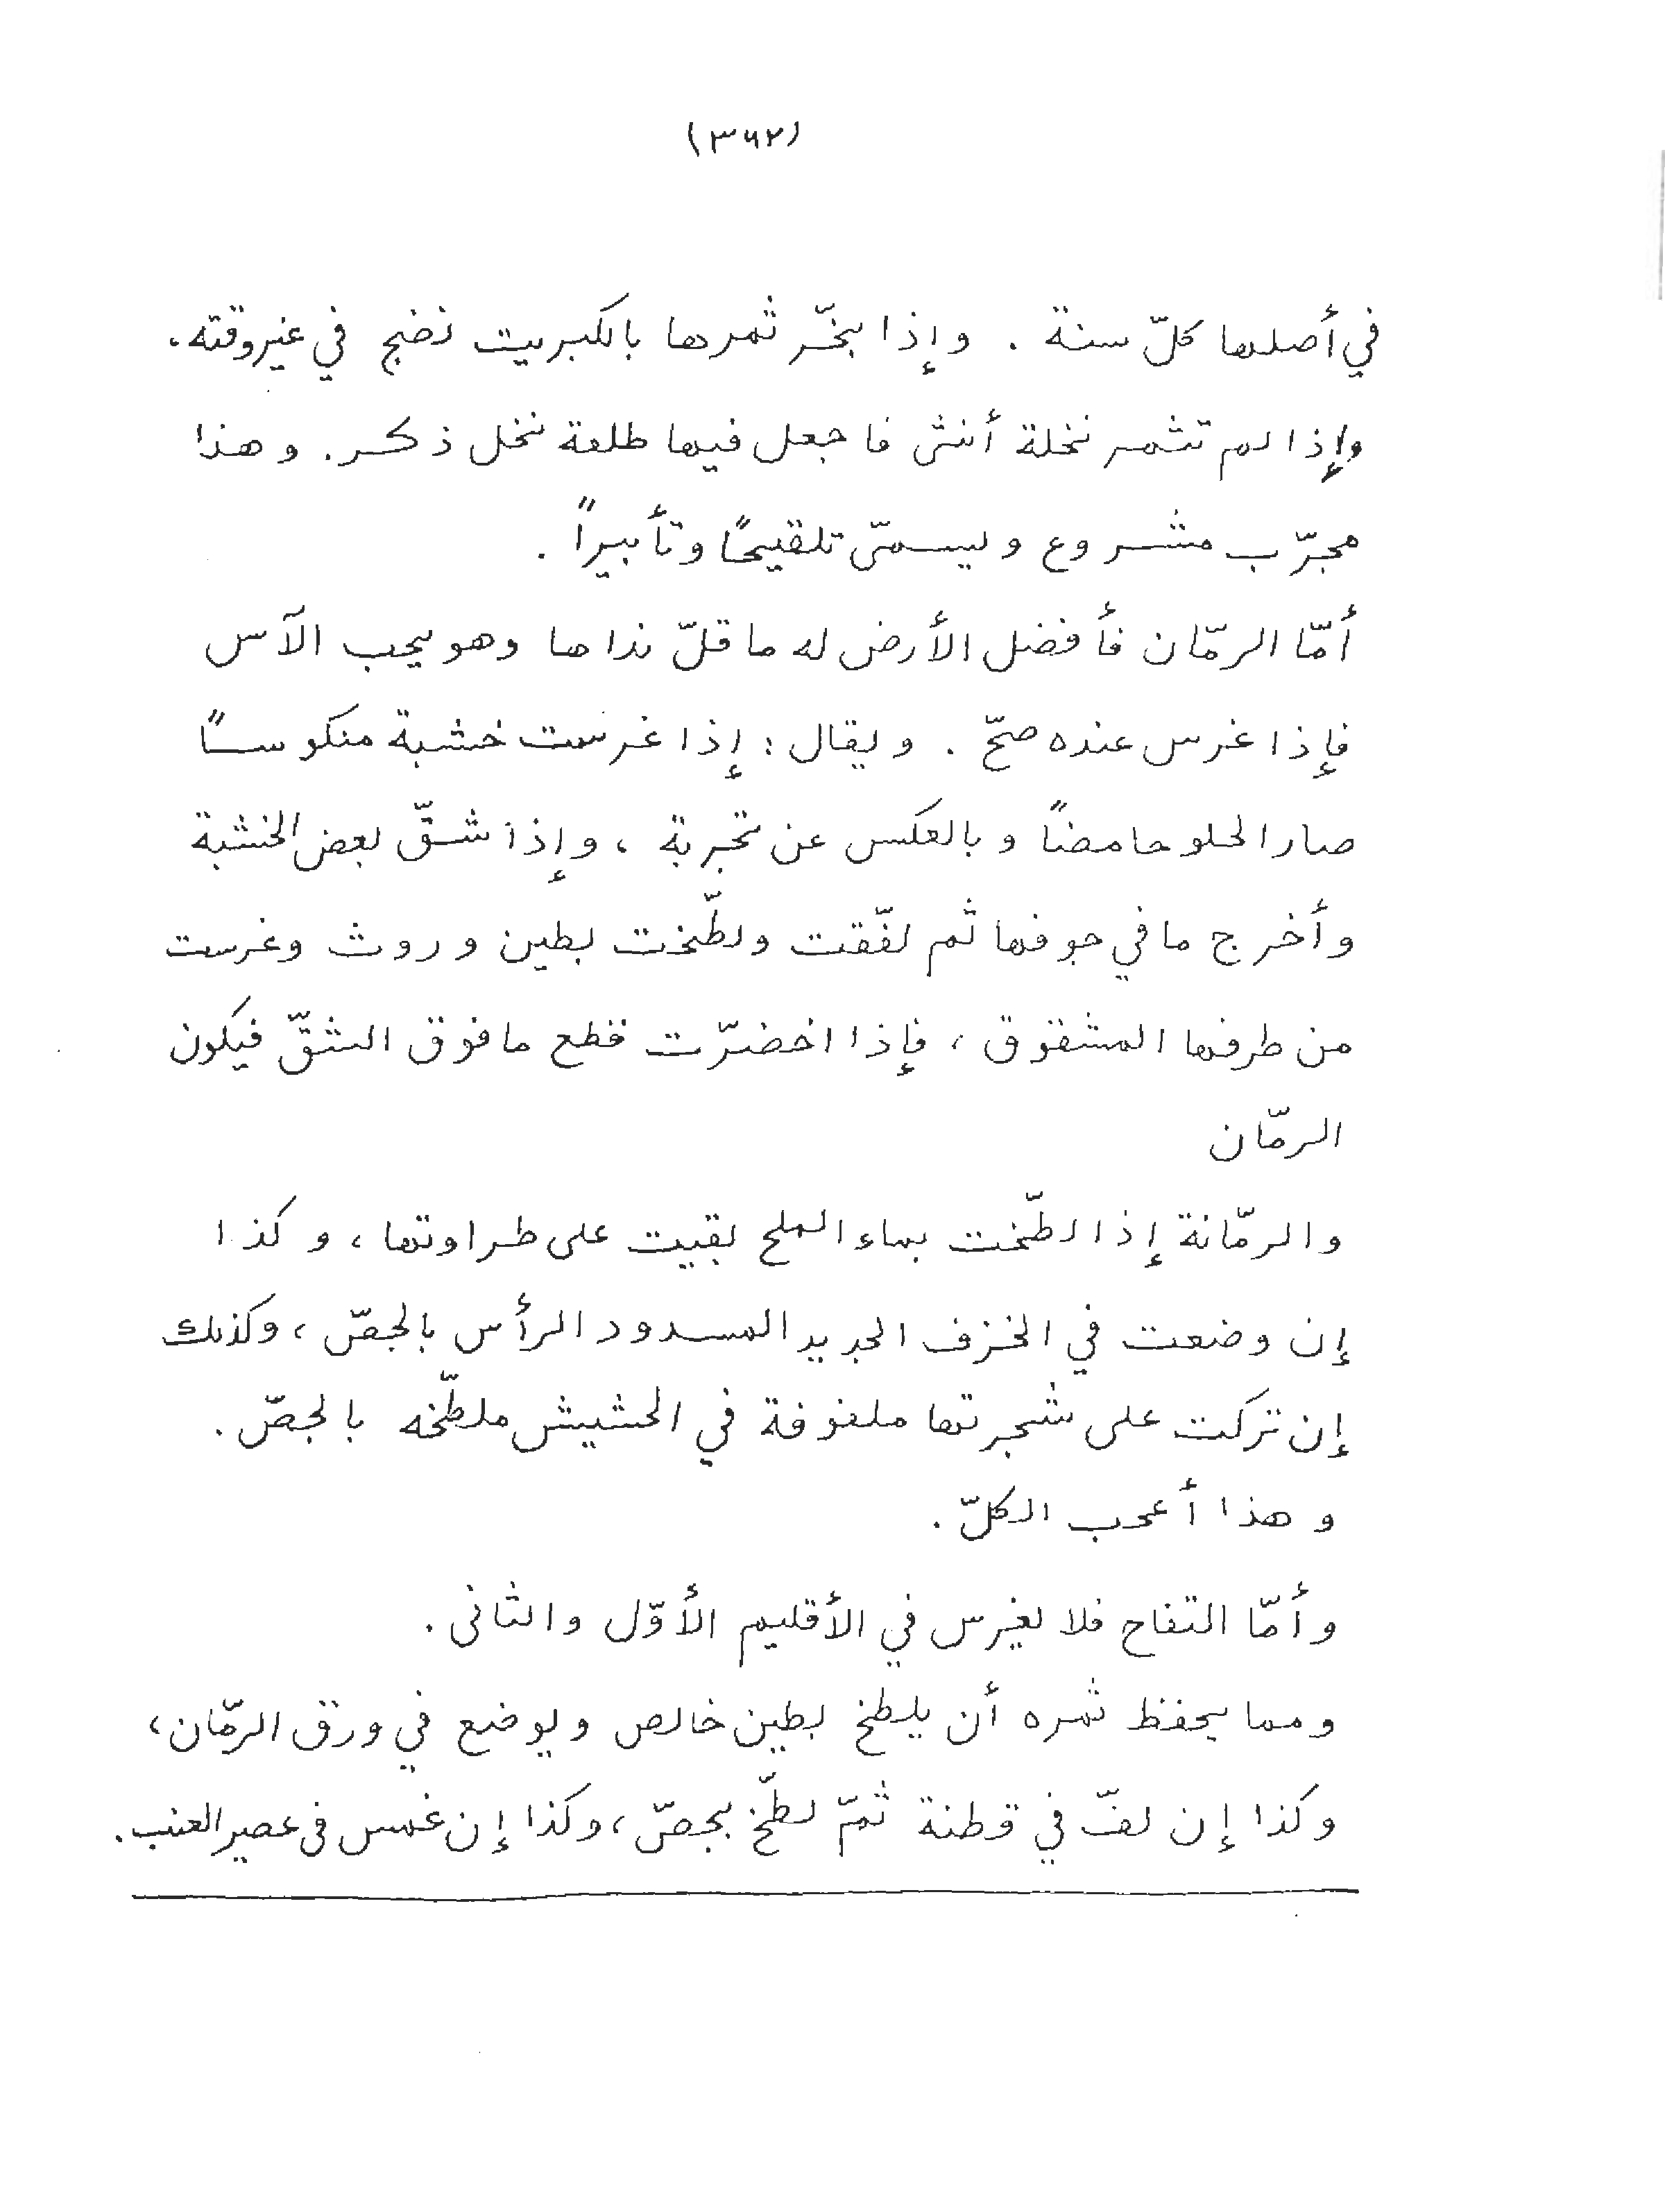 (٣٦٢)
في أصلها كلّ سنة . وإذا بخّر ثمرها بالكبريت نضج في غير وقته .
وإذا لم تثمر نخلة أنثى فاجعل فيها طلعة نخل ذكر . وهذا
مجرّب مشروع ويسمّى تلقيحًا وتأبيراً .
أمّا الرمّان فأفضل الأرض له ما قلّ نداها وهو يحب الآس
فإذا غرس عنده صحّ . ويقال : إذا غرست خشبة منكوسـًا
صار الحلو حامضاً وبالعكس عن تجربة ، وإذا شقّ بعض الخشبة
وأخرج ما في جوفها ثم لفّقت ولطّخت بطين وروث وغرست
من طرفها المشقوق ، فإذا اخضرّت قطع ما فوق الشقّ فيكون
الرمّان
والرمّانة إذا لطّخت بماء الملح بقيت على طراوتها ، وكذا
إن وضعت في الخزف الجديد المسدود الرأس بالجصّ ، وكذلك
إن تركت على شجرتها ملفوفة في الحشيش ملطّخه بالجصّ .
وهذا أعجب الكلّ .
وأمّا التفاح فلا يغرس في الأقليم الأوّل والثانى .
ومما يحفظ ثمره أن يلطخ بطين خالص ويوضع في ورق الرمّان ،
وكذا إن لفّ في قطنة ثمّ لطّخ بجصّ ، وكذا إن غمس فى عصير العنب .